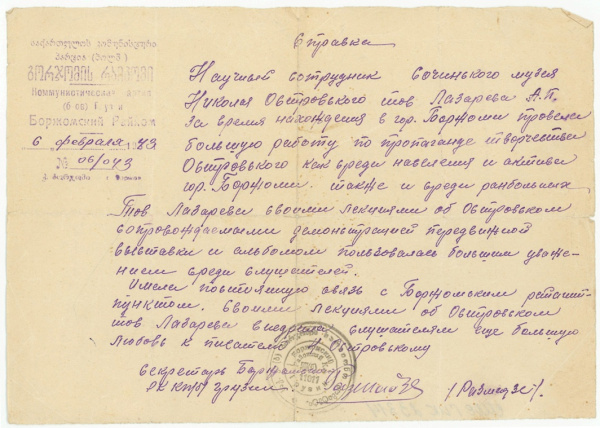 Справка
საქართველოს კომუნისტური
პარტია (ბოლშ.)
ბორჯომის რაიკომი
Коммунистическая партия
(б-ов) Грузии
Боржомский Райком
6 февраля 1943
№ 06/043
Научный сотрудник Сочинского музея
Николая Островского тов Лазарева А.П.
за время нахождения в гор. Боржоми провела
большую работу по пропаганде творчества
Островского как среди населения и актива
гор. Боржоми. также и среди ранбольных
Тов. Лазарева своими лекциями об Островском
сопровождаемыми демонстрацией передвижной
выставки и альбомом пользовалась большим уваже-
нием среди слушателей.
Имела постоянную связь с Боржомским
пунктом. своими лекциями об Островском
тов Лазарева внедрила слушателям еще большую
любовь к писателю Островскому
секретарь
РК КП/б Грузии